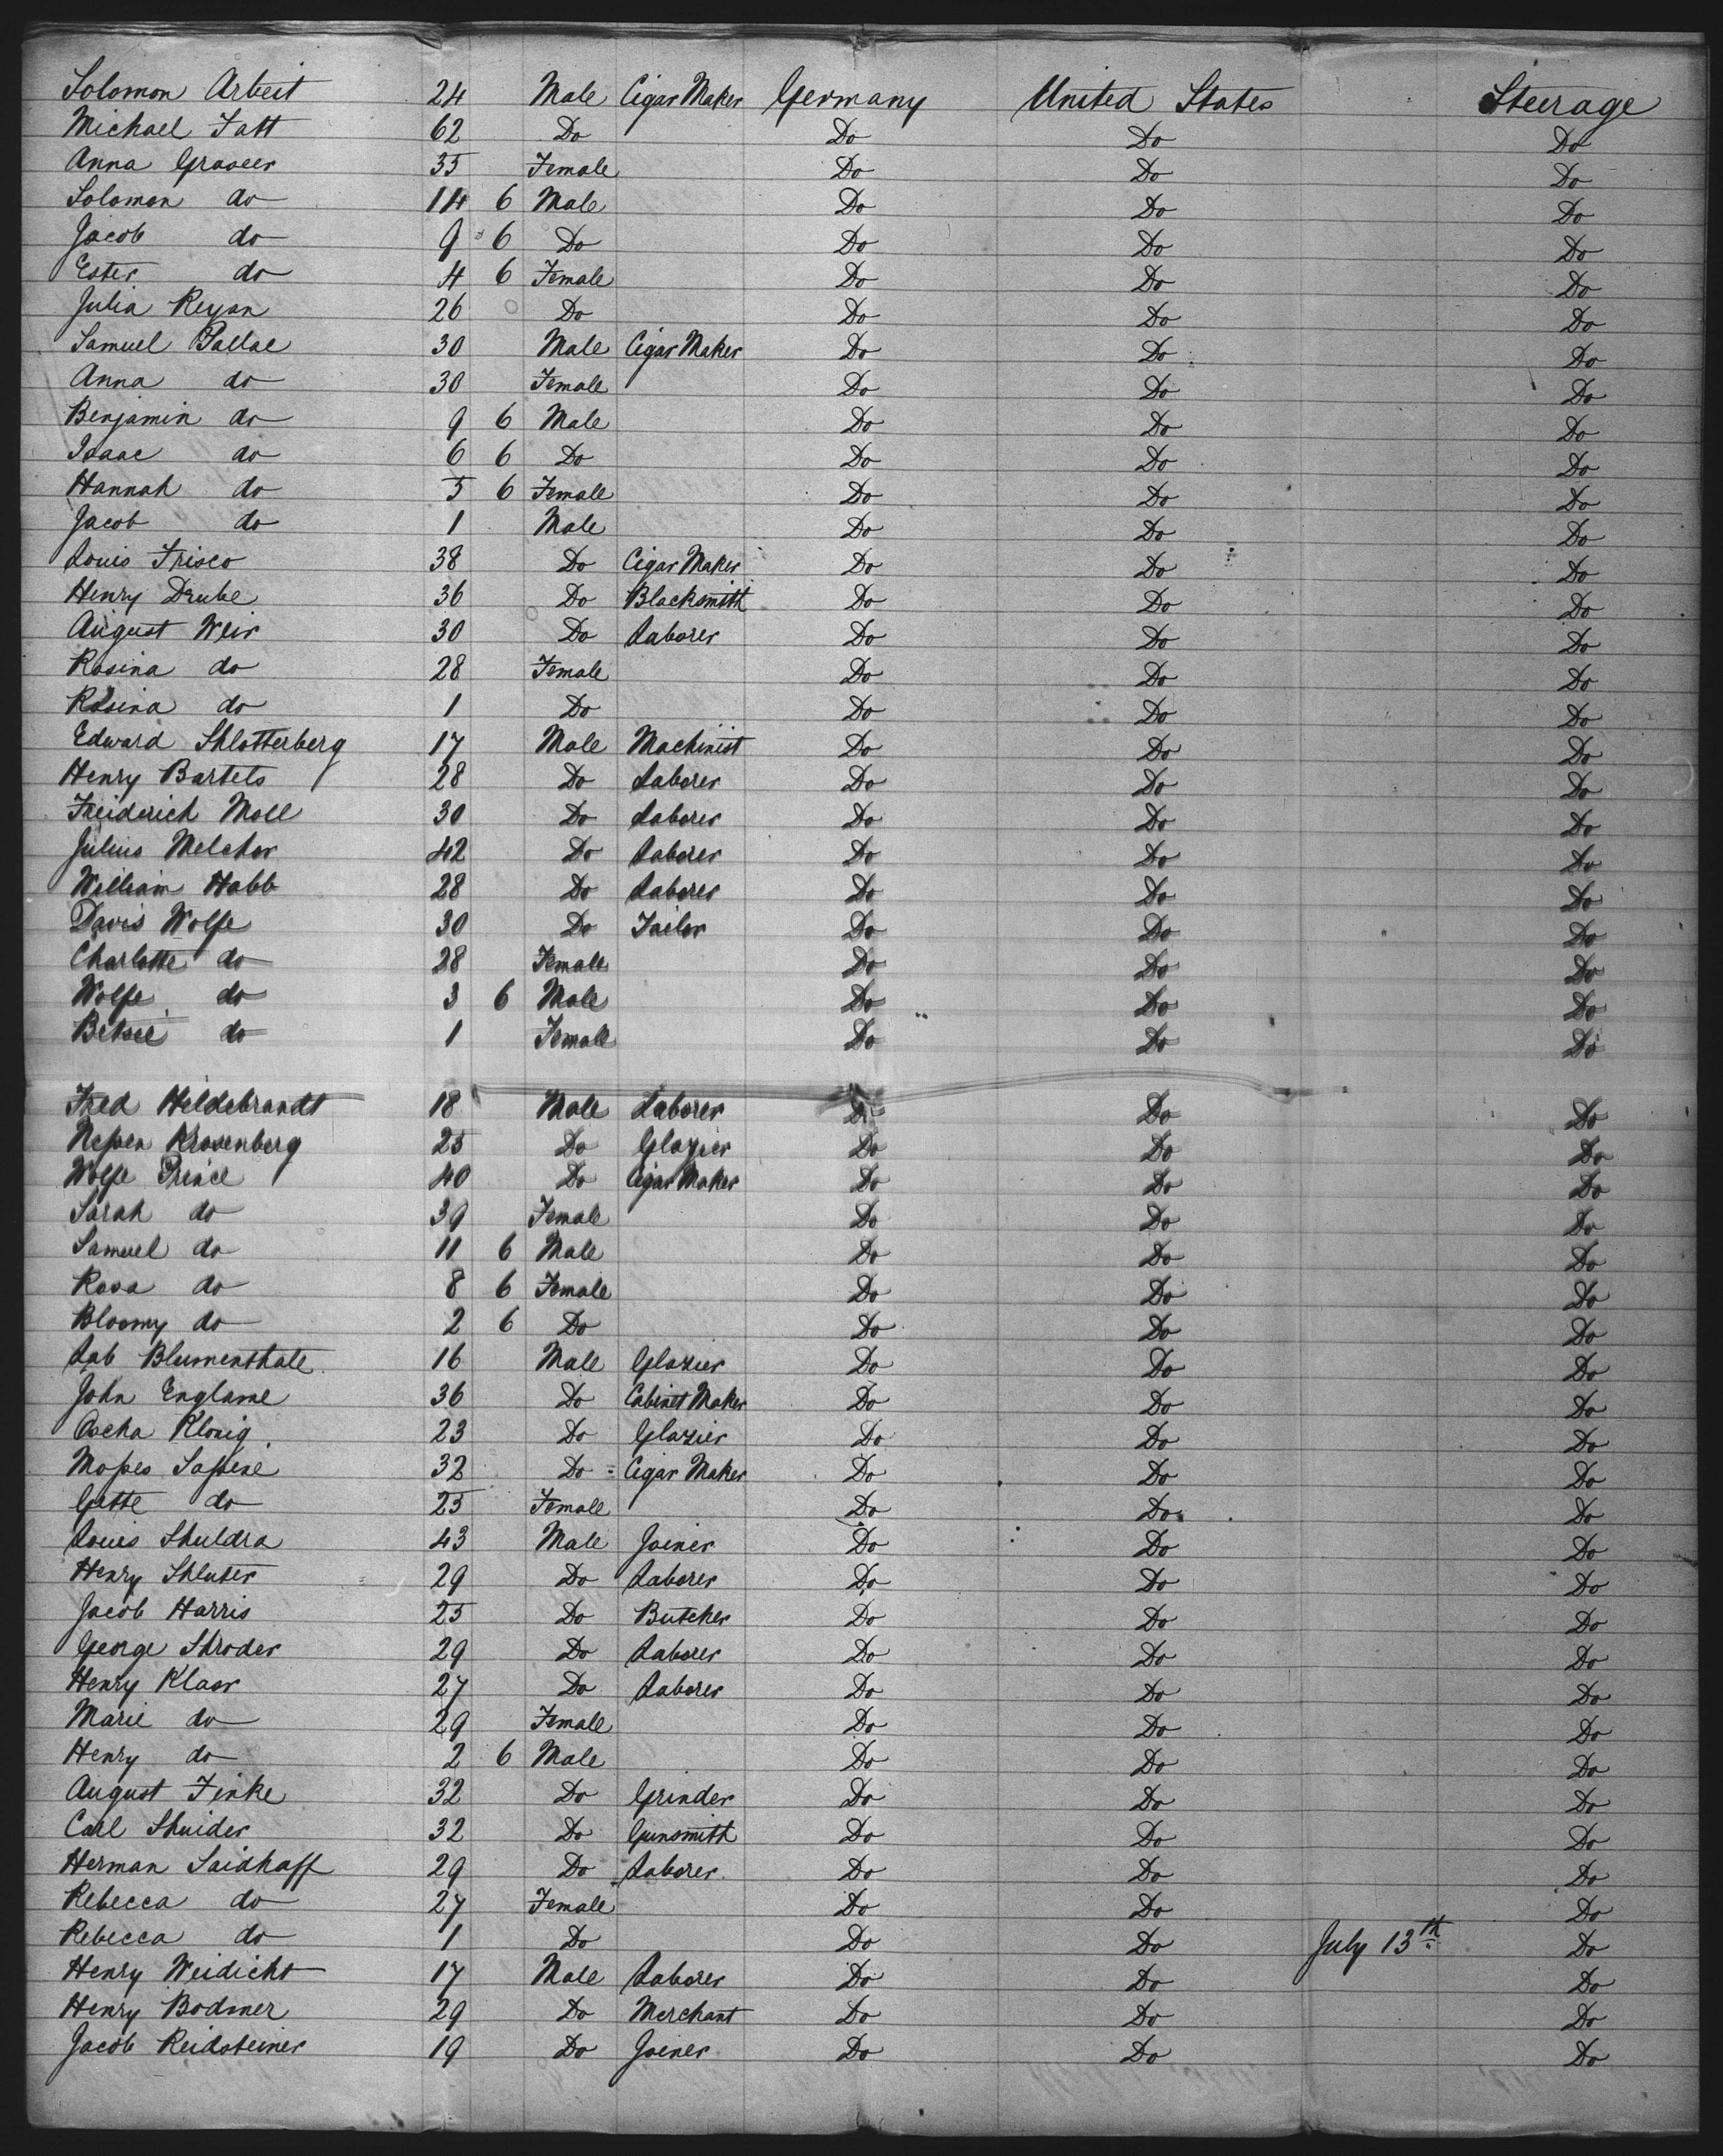 Solomon Arbeit 24 Male Cigar Maker Germany United States Steerage
Michael Fatt 62 Do Do Do Do
Anna Graveer 35 Female Do Do Do
Solomon do 14 6 Male Do Do Do
Jacob do 9 6 Do Do Do Do
Ester do 4 6 Female Do Do Do
Julia Reyan 26 Do Do Do Do
Samuel Pallac 30 Male Cigar Maker Do Do Do
Anna do 30 Female Do Do Do
Benjamin do 9 6 Male Do Do Do
Isaac do 6 6 Do Do Do Do
Hannah do 5 6 Female Do Do Do
Jacob do 1 Male Do Do Do
Louis Frisco 38 Do Cigar Maker Do Do Do
Henry Drube 36 Do Blacksmith Do Do Do
August Weir 30 Do Laborer Do Do Do
Rosina do 28 Female Do Do Do
Rosina do 1 Do Do Do Do
Edward Shlotterberg 17 Male Machinist Do Do Do
Henry Bartels 28 Do Laborer Do Do Do
Freiderich Moll 30 Do Laborer Do Do Do
Julius Melchor 42 Do Laborer Do Do Do
William Habb 28 Do Laborer Do Do Do
Davis Wolfe 30 Do Tailor Do Do Do
Charlotte do 28 Female Do Do Do
Wolfe do 3 6 Male Do Do Do
Betsee do 1 Female Do Do Do
Fred Hildebrandt 18 Male Laborer Do Do Do
Nessen Krosenberg 25 Do Glazier Do Do Do
Wolfe Prince 40 Do Cigar Maker Do Do Do
Sarah do 39 Female Do Do Do
Samuel do 11 6 Male Do Do Do
Rosa do 8 6 Female Do Do Do
Bloomy do 2 6 Do Do Do Do
Lab Blumenthale 16 Male Glazier Do Do Do
John Englame 36 Do Cabinet Maker Do Do Do
Klonig 23 Do Glazier Do Do Do
Mosses Sassene 32 Do Cigar Maker Do Do Do
Gette do 25 Female Do Do Do
Louis Shuldra 43 Male Joiner Do Do Do
Henry Shluter 29 Do Laborer Do Do Do
Jacob Harris 25 Do Butcher Do Do Do
George Shroder 29 Do Laborer Do Do Do
Henry Klaor 27 Do Laborer Do Do Do
Marie do 29 Female Do Do Do
Henry do 2 6 Male Do Do Do
August Finke 32 Do Grinder Do Do Do
Carl Shnider 32 Do Gunsmith Do Do Do
Herman Saidhoff 29 Do Laborer Do Do Do
Rebecca do 27 Female Do Do Do
Rebecca do 1 Do Do Do July 13th Do
Henry Weidicht 17 Male Laborer Do Do Do
Henry Bodmer 29 Do Merchant Do Do Do
Jacob Reidsteiner 19 Do Joiner Do Do Do